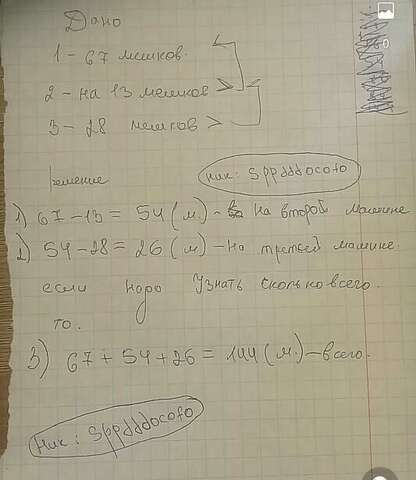 Дано
1 - 67 мешков.
2 - на 13 мешков >
3 - 28 мешков >
решение
ник: Spppdddocoto
1) 67 - 13 = 54 (м.) - на второй машине
2) 54 - 28 = 26 (м) - на третьей машине.
если надо узнать сколько всего.
то.
3) 67 + 54 + 26 = 144 (м.) - всего.
Ник: Spppdddocoto